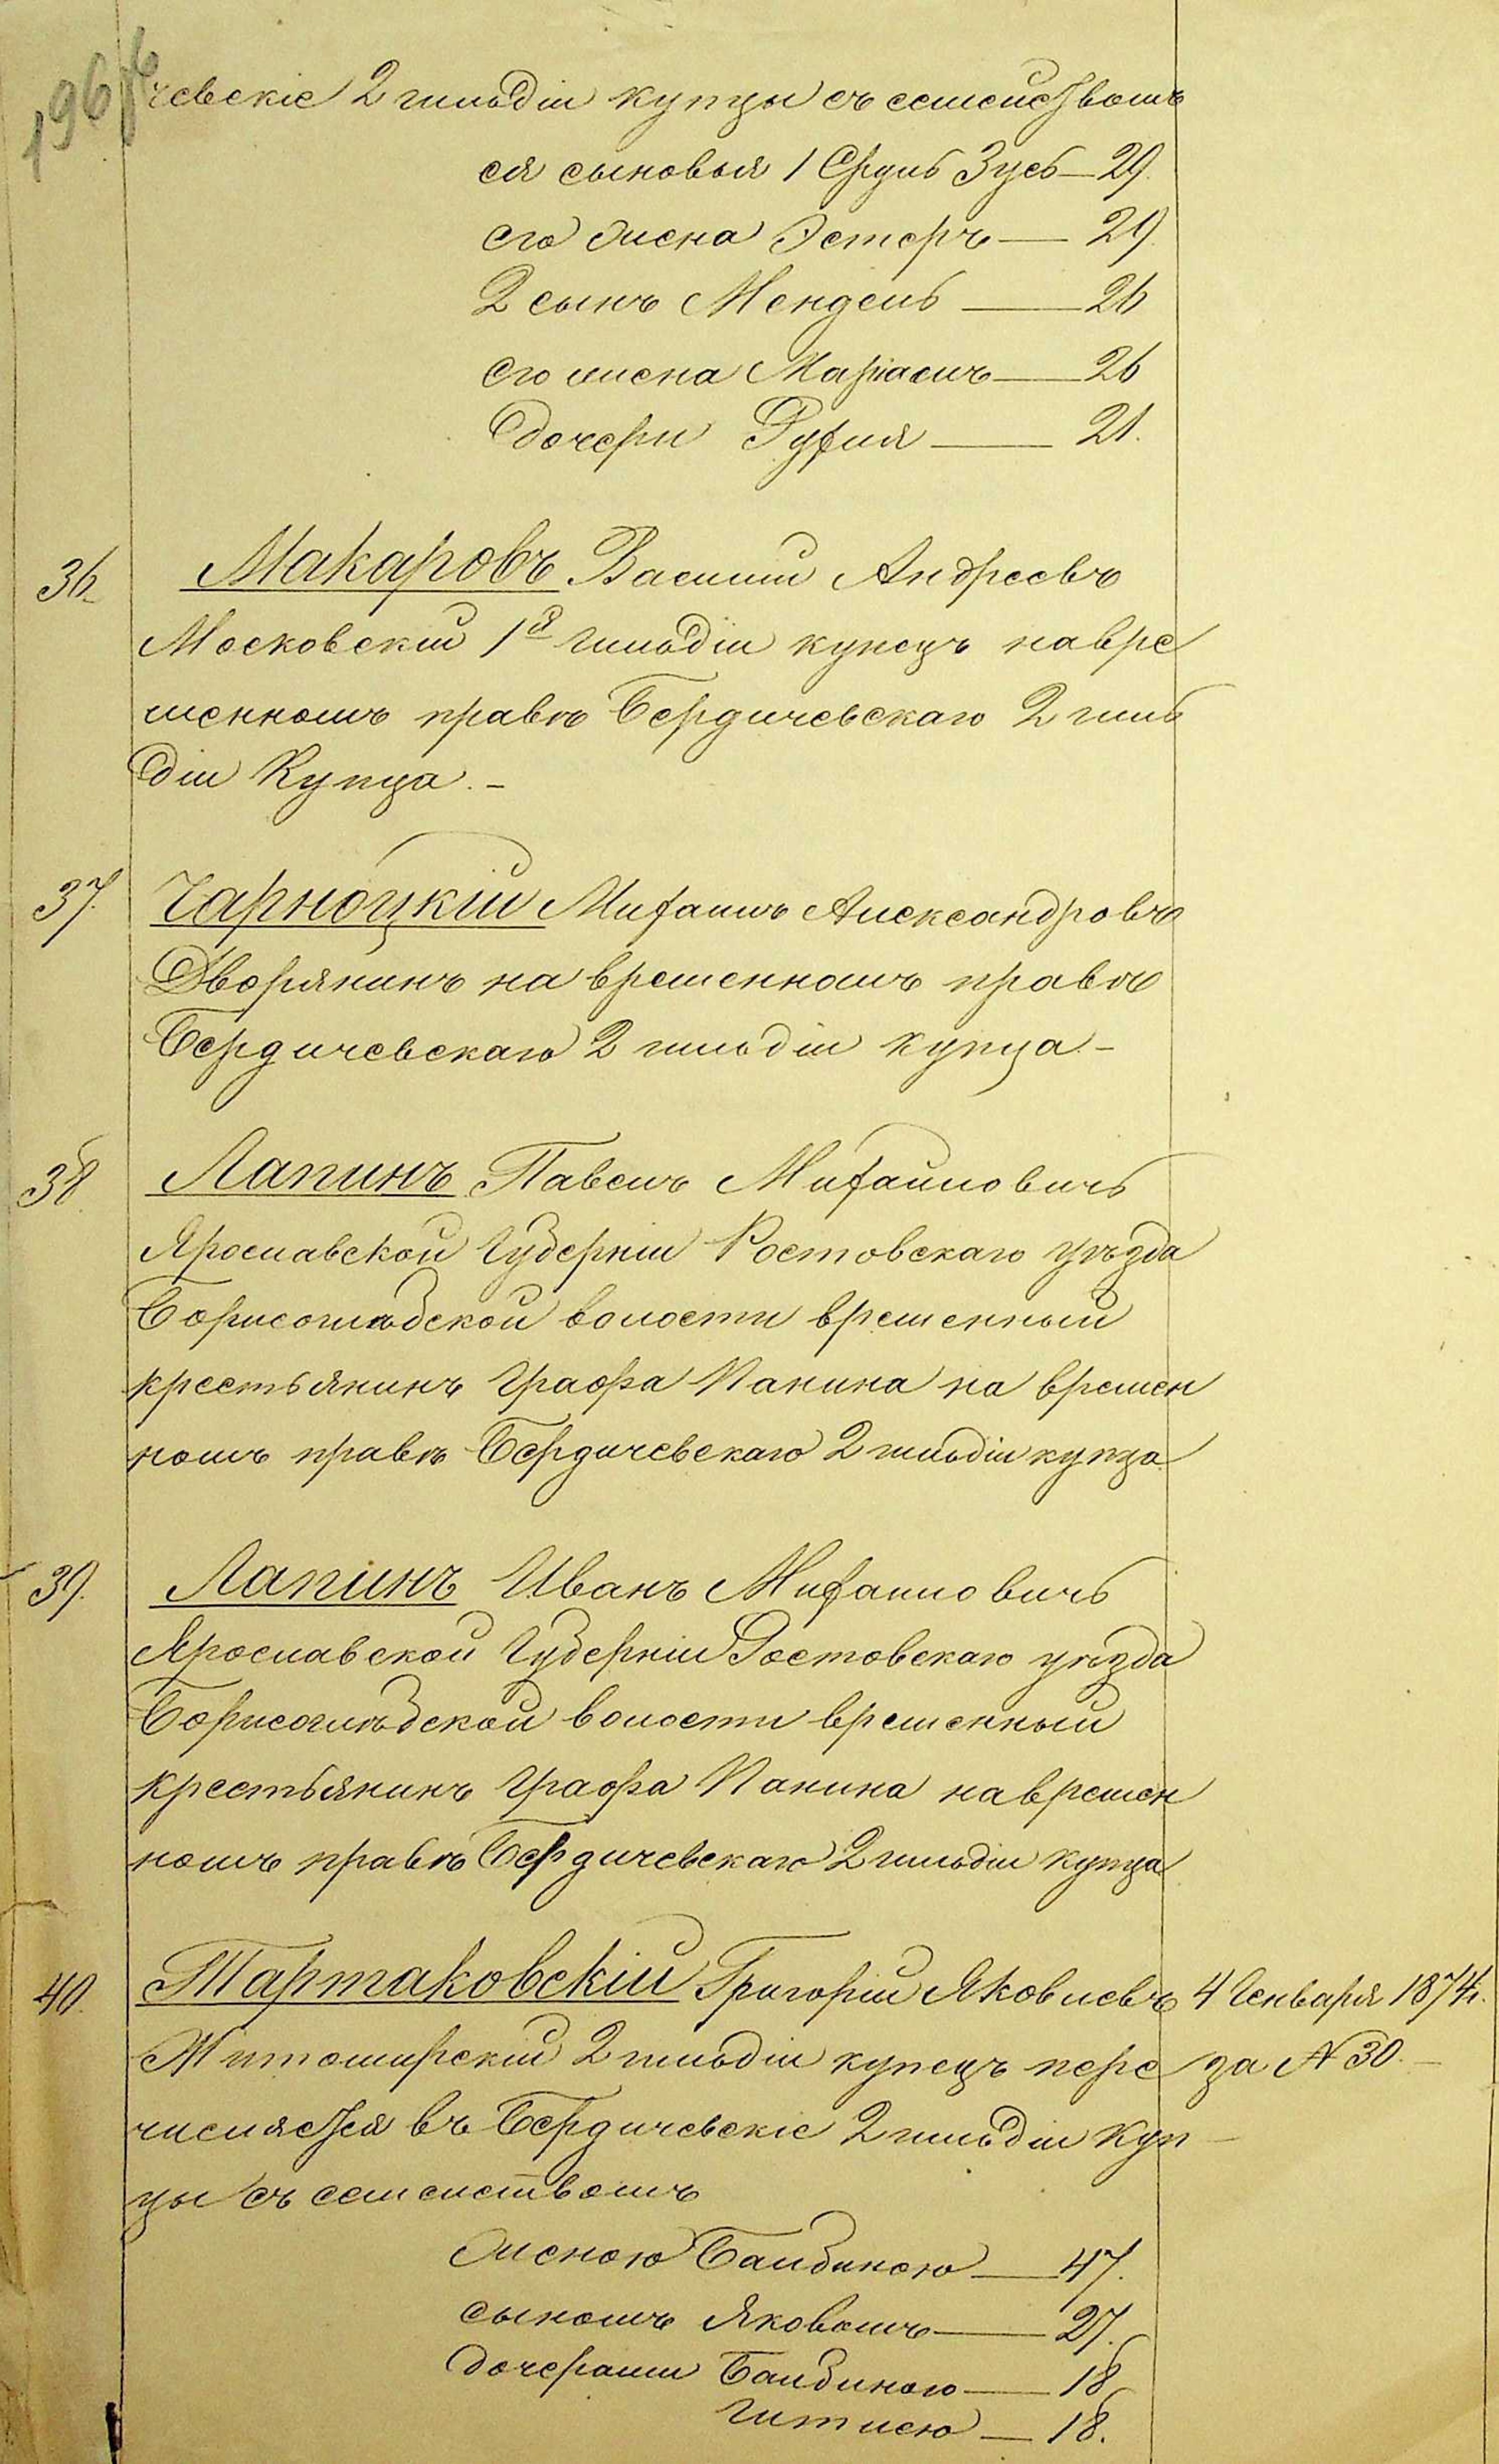 196
чевскіе 2 гильдіи купцы съ семействомъ
ея сыновья 1 Сруль Зусь — 29.
его жена Эстеръ — 29.
2 сынъ Мендель — 26
его жена Маріасъ — 26
дочери Руфля — 21.
36. Макаровъ Василій Андреевъ
Московскій 1й гильдіи купецъ на вре
менномъ правѣ Бердичевскаго 2 гиль
діи Купца. -
37. Чарноцкій Михаилъ Александровъ
Дворянинъ на временномъ правѣ
Бердичевскаго 2 гильдіи купца. -
38. Лапинъ Павелъ Михаиловичь
Ярославской Губерніи Ростовскаго уѣзда
Борисоглѣбской волости временный
крестьянинъ Графа Панина на времен
номъ правѣ Бердичевскаго 2 гильдіи купца
39. Лапинъ Иванъ Михаиловичь
Ярославской Губерніи Ростовскаго уѣзда
Борисоглѣбской волости временный
крестьянинъ Графа Панина на времен
номъ правѣ Бердичевскаго 2 гильдіи купца
40. Тартаковскій Григорій Яковлевъ 4 Генваря 1874 г.
Житомирскій 2 гильдіи купецъ пере за N 30. -
числяется въ Бердичевскіе 2 гильдіи Куп -
цы съ семействомъ
женою Баибиною — 47.
сыномъ Яковомъ — 27.
дочерами Баибиною — 18
Гитлею — 18.